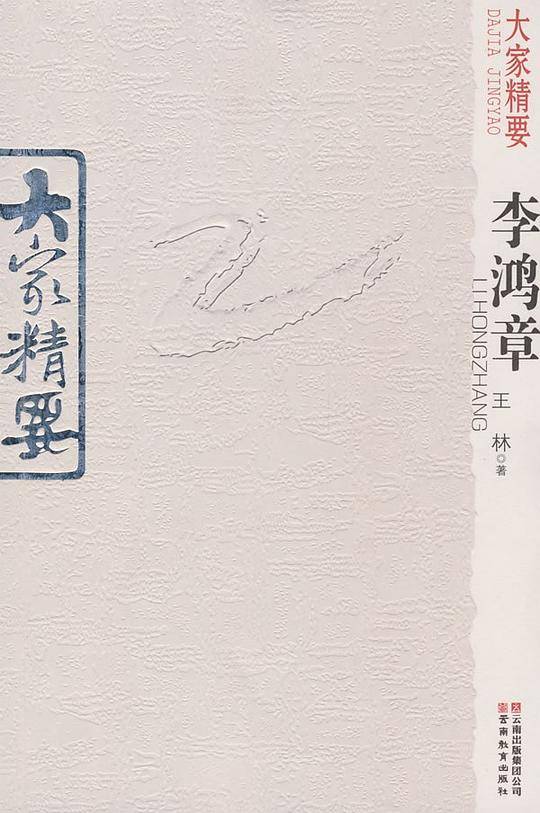 大家精要
DAJIA JINGYAO
李鸿章
LI HONGZHANG
王林◎著
大家精要
云南出版集团公司
云南教育出版社